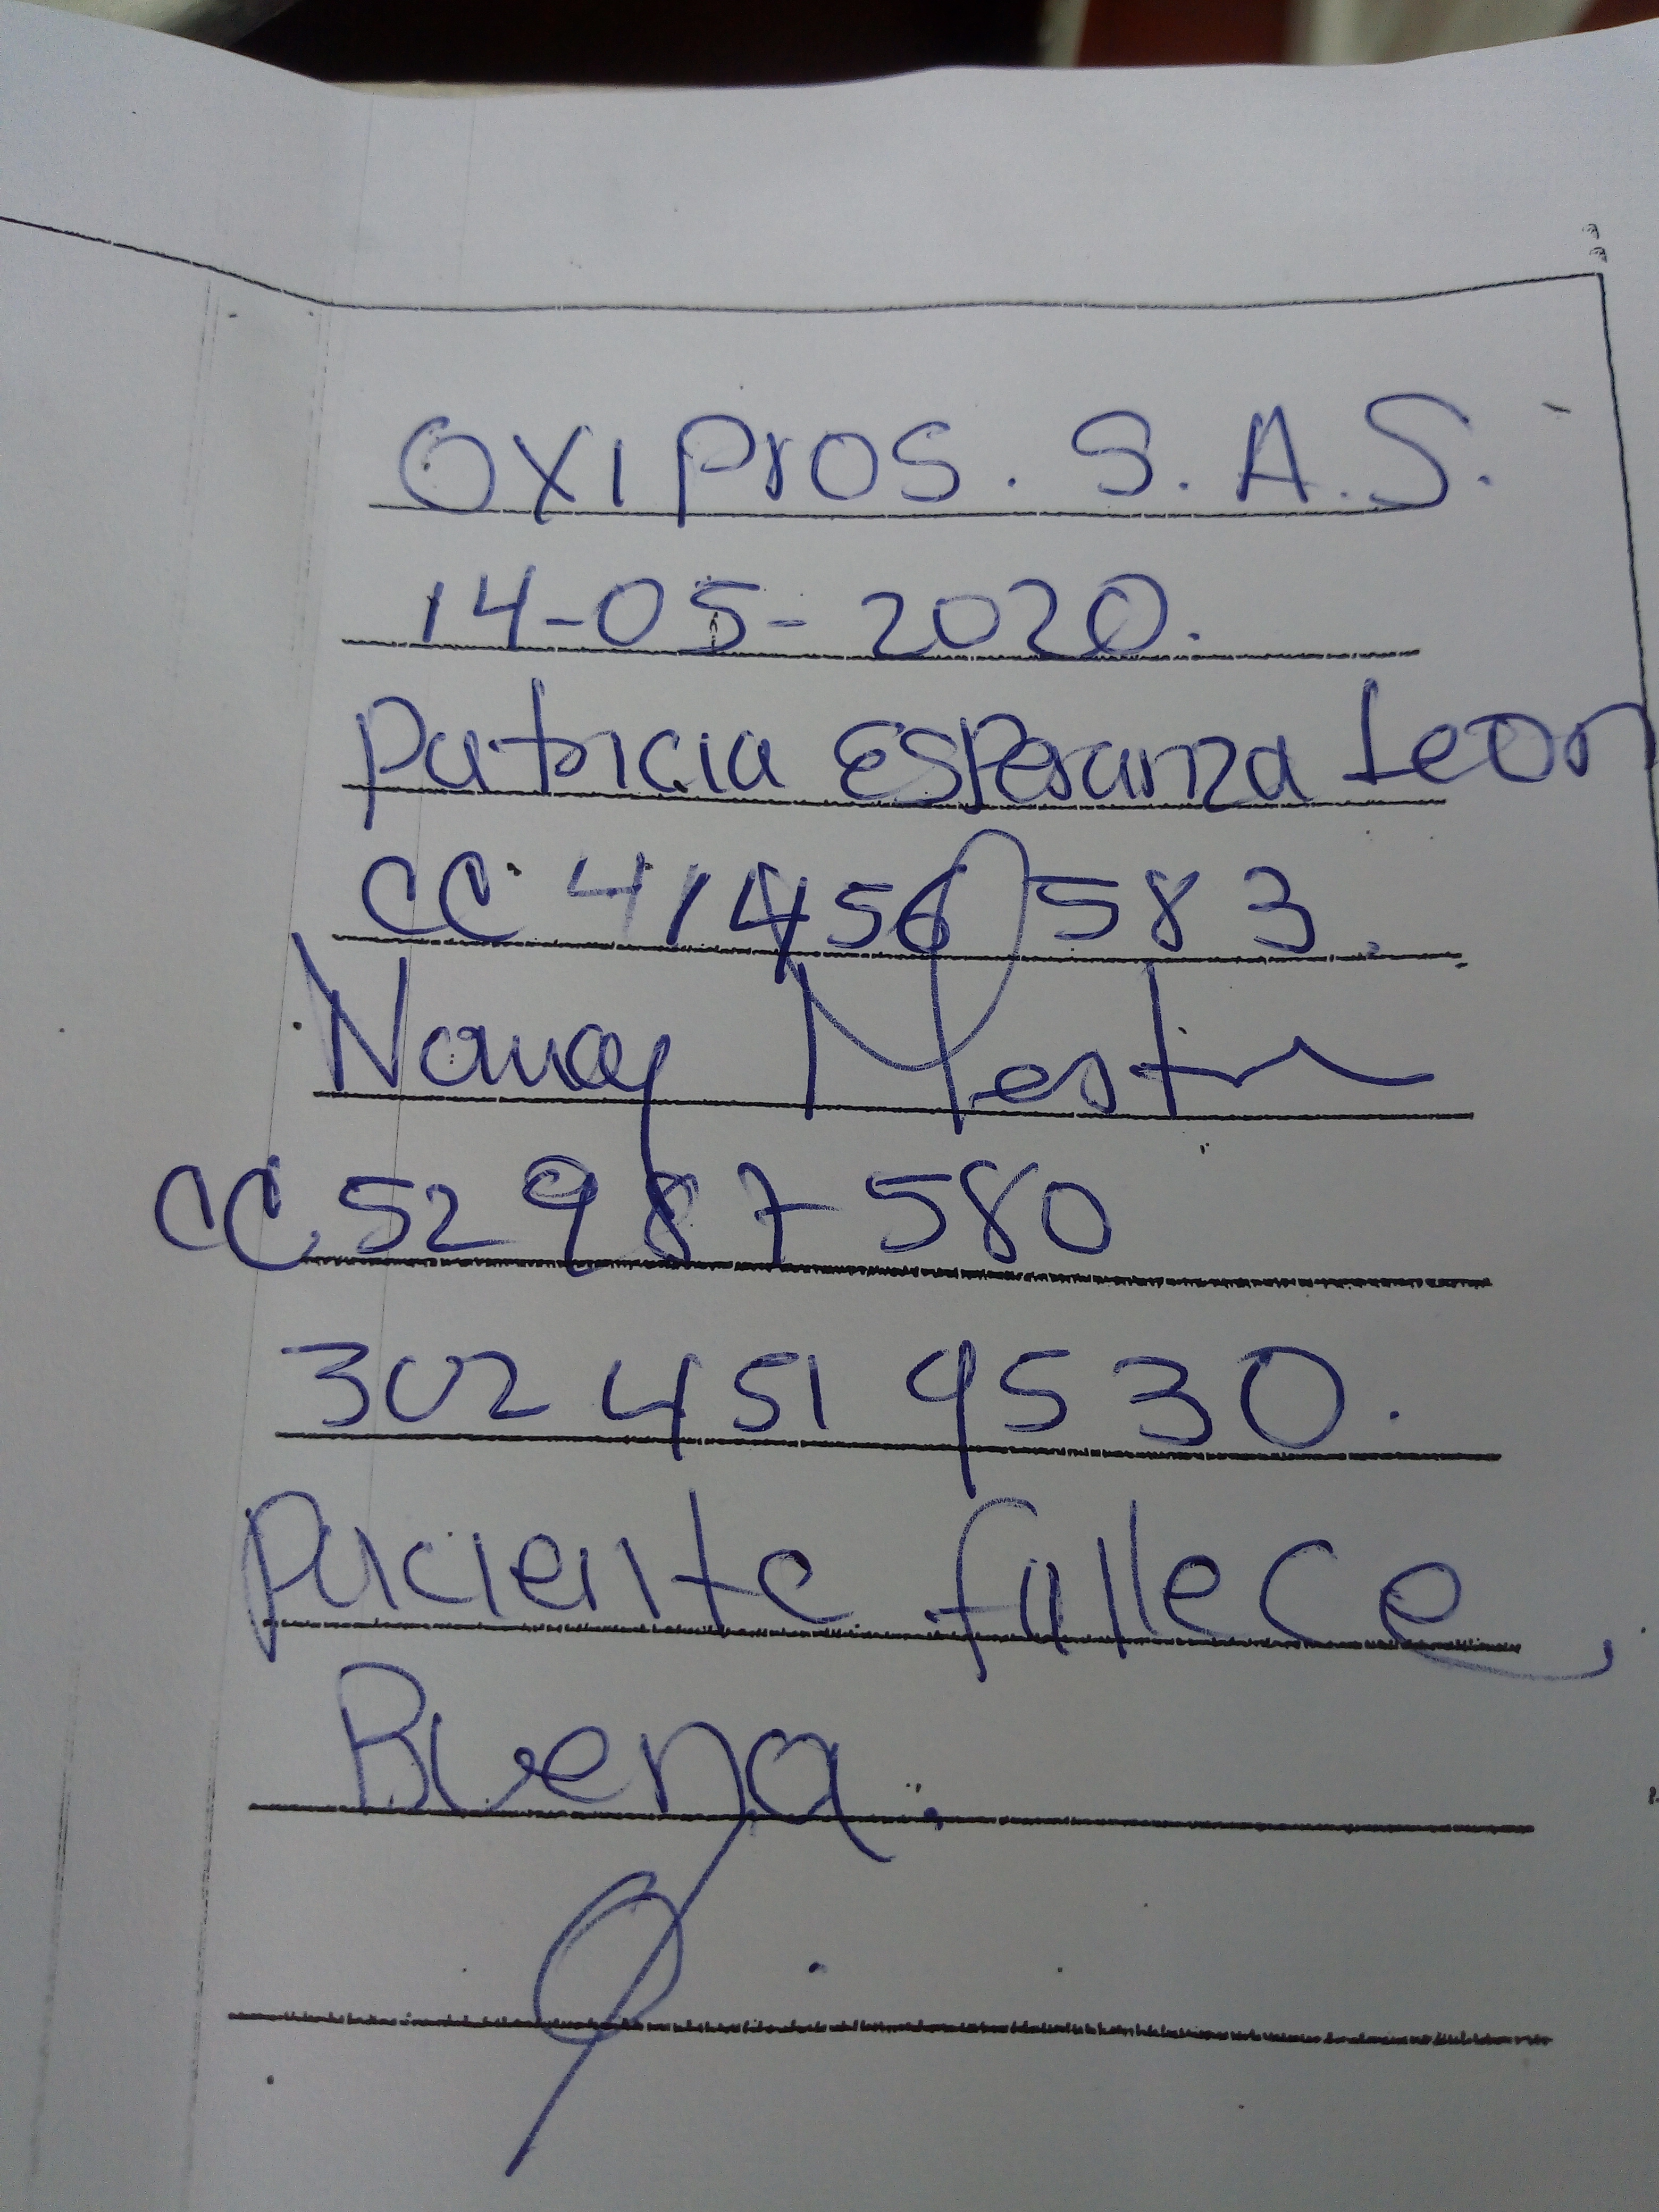 OXIPROS. S.A.S.
14-05-2020.
Patricia Esperanza Leon
CC. 41456583.
Nancy
CC. 52987580
302 451 9530.
Paciente fallece,
Buena.